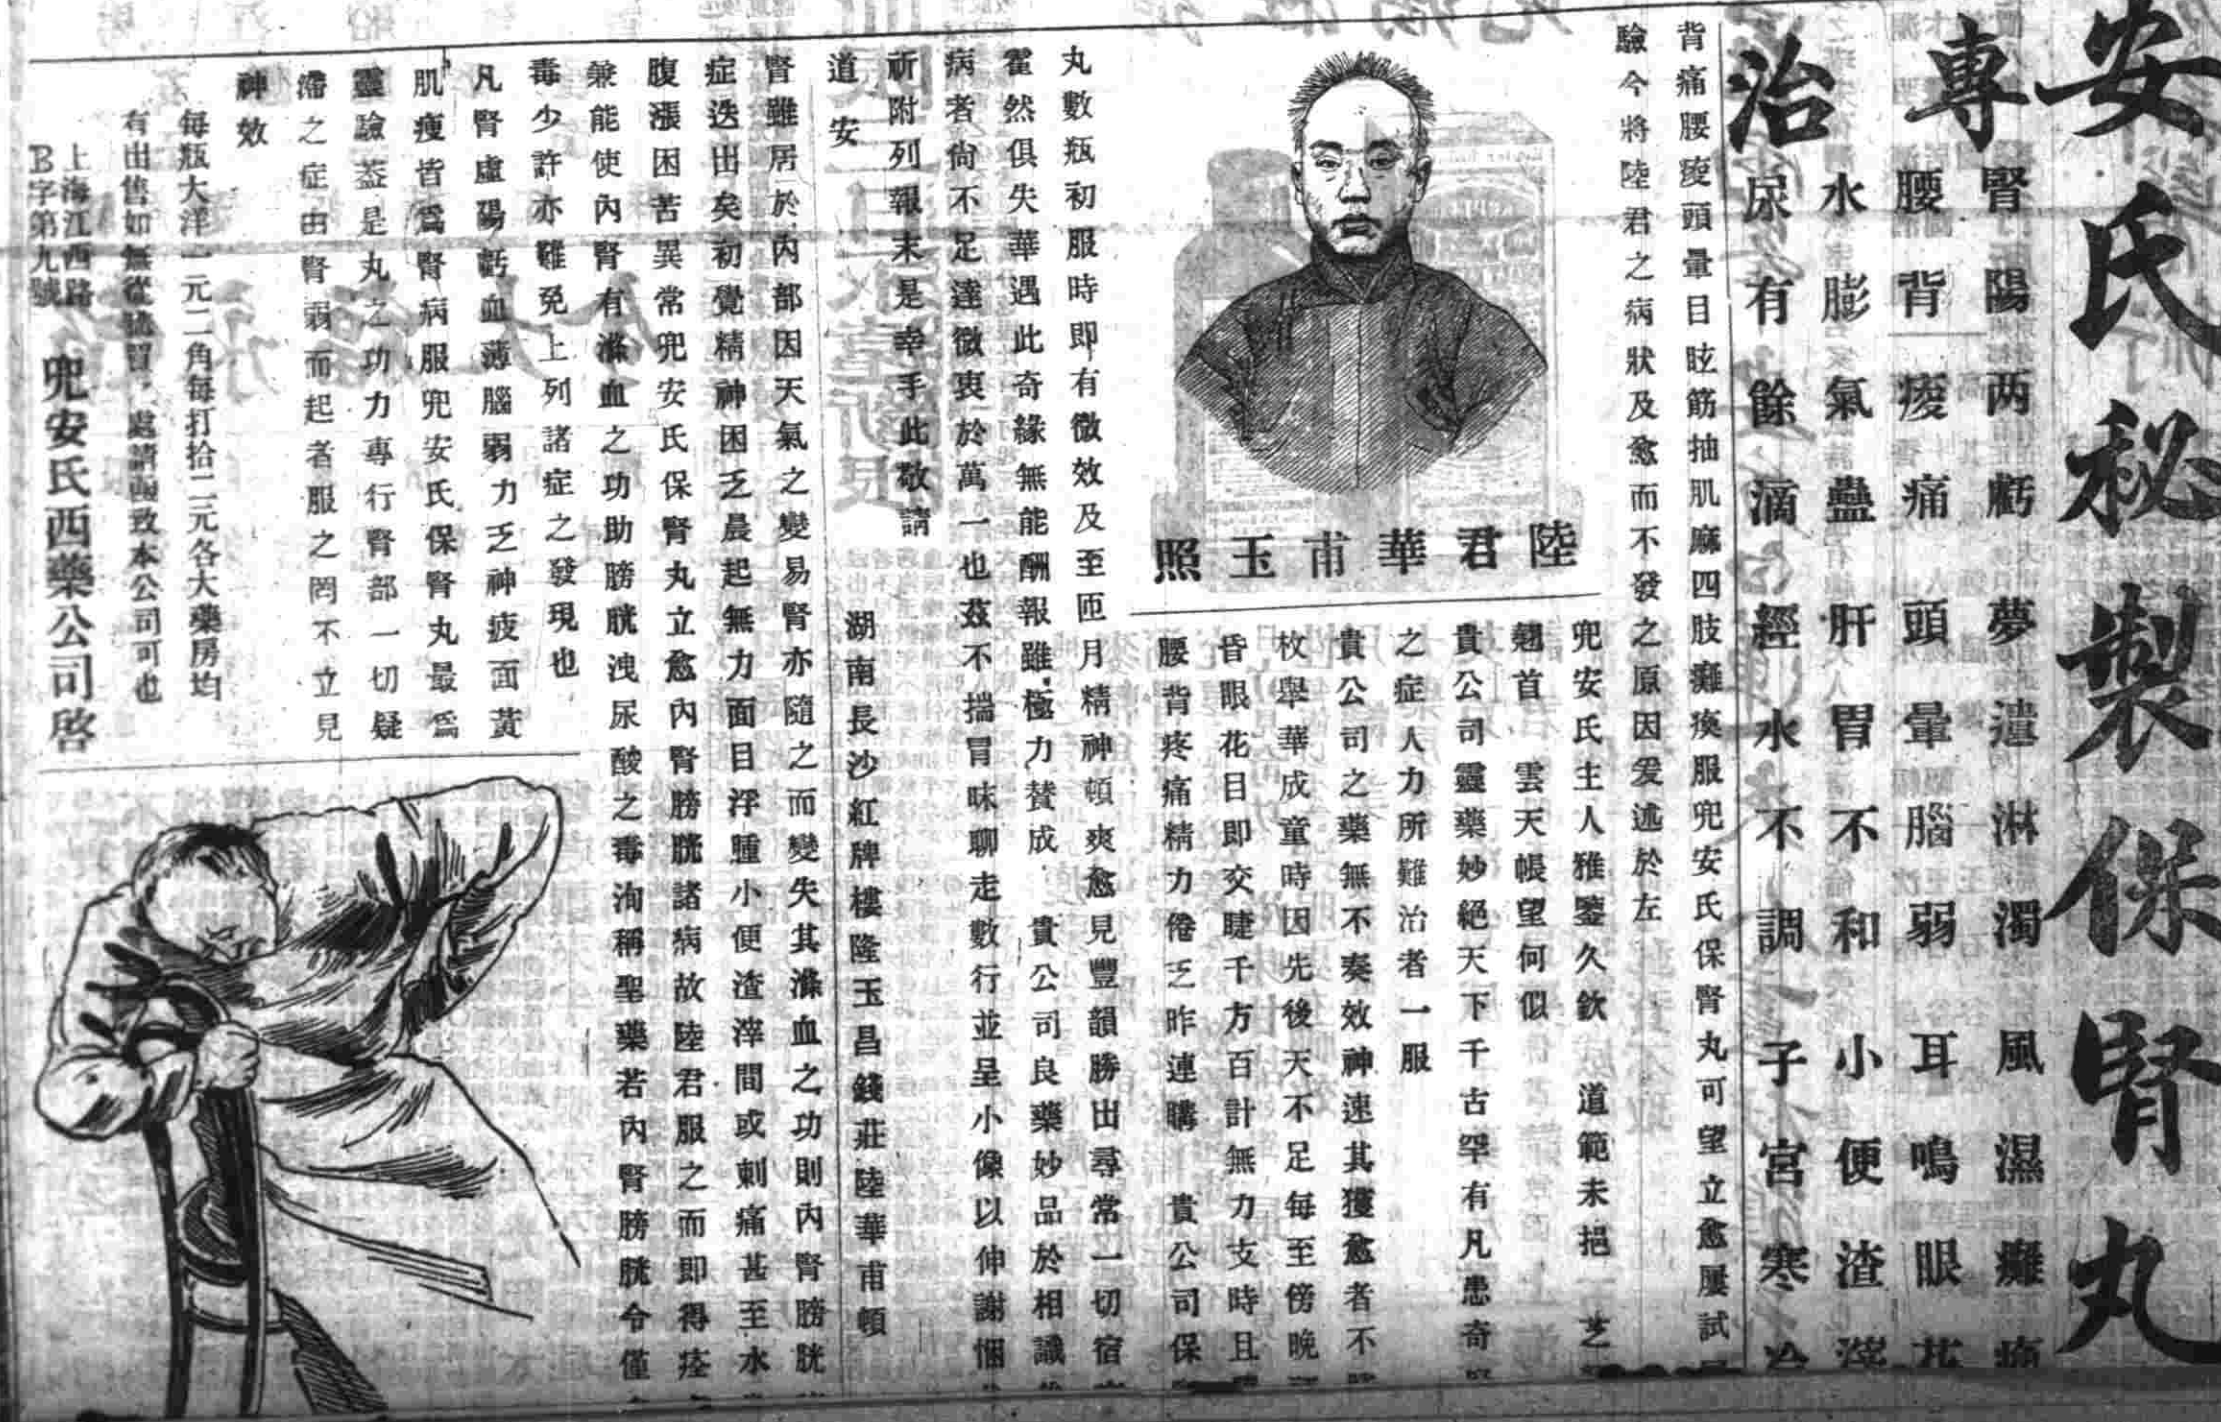 安氏秘製保腎丸
專治
腎陽兩虧夢遺淋濁風濕癱瘓
腰背痠痛頭暈腦弱耳鳴眼花
水膨氣蠱肝胃不和小便渣滓
尿有餘滴經水不調子宮寒冷
背痛腰痠頭暈目眩筋抽肌麻四肢癱瘓服兜安氏保腎丸可望立愈屢試
驗今將陸君之病狀及愈而不發之原因爰述於左
陸君華甫玉照
兜安氏主人雅鑒久欽 道範未挹 芝
翹首 雲天帳望何似
貴公司靈藥妙絕天下千古罕有凡患奇
之症人力所難治者一服
貴公司之藥無不奏效神速其獲愈者不
枚舉華成童時因先後天不足每至傍晚
昏眼花目即交睫千方百計無力支時且
腰背疼痛精力倦乏昨連購 貴公司保
丸數瓶初服時即有微效及至匝月精神頓爽愈見豐韻勝出尋常一切宿
霍然俱失華遇此奇緣無能酬報雖極力贊成 貴公司良藥妙品於相識
病者尙不足達微衷於萬一也茲不揣冒昧聊走數行並呈小像以伸謝悃
祈附列報末是幸手此敬請
道安 湖南長沙紅牌樓隆玉昌錢莊陸華甫頓
腎雖居於內部因天氣之變易腎亦隨之而變失其滌血之功則內腎膀胱
症迭出矣初覺精神困乏晨起無力面目浮腫小便渣滓間或刺痛甚至水
腹漲困苦異常兜安氏保腎丸立愈內腎膀胱諸病故陸君服之而即得痊
兼能使內腎有滌血之功助膀胱洩尿酸之毒洵稱聖藥若內腎膀胱令僅
毒少許亦難免上列諸症之發現也
凡腎虛陽虧血薄腦弱力乏神疲面黃
肌瘦皆爲腎病服兜安氏保腎丸最爲
靈驗蓋是丸之功力專行腎部一切疑
滯之症由腎弱而起者服之罔不立見
神效
每瓶大洋一元二角每打拾二元各大藥房均
有出售如無從購買處請函致本公司可也
上海江西路
B字第九號
兜安氏西藥公司啓